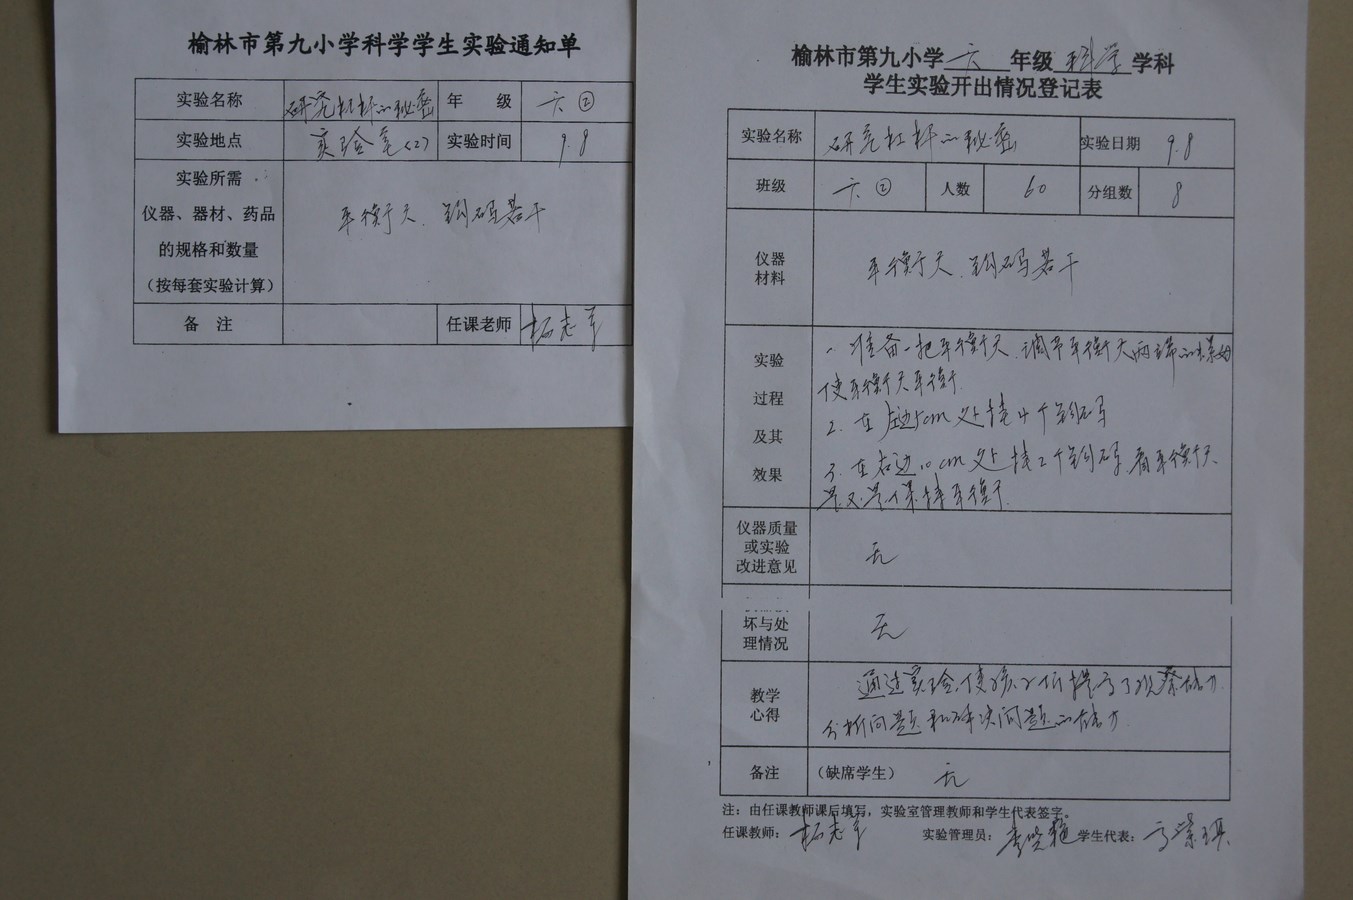 榆林市第九小学科学学生实验通知单
实验名称 研究杠杆的秘密 年 级 六②
实验地点 实验室(2) 实验时间 9.8
实验所需
仪器、器材、药品
的规格和数量
(按每套实验计算)
平衡尺、钩码若干
备 注 任课老师
榆林市第九小学 六 年级 科学 学科
学生实验开出情况登记表
实验名称 研究杠杆的秘密 实验日期 9.8
班级 六② 人数 60 分组数 8
仪器
材料
平衡尺、钩码若干
实验
过程
及其
效果
一准备一把平衡尺、调节平衡尺两端的螺母
使平衡尺平衡.
2. 在左边5cm处挂4个钩码
3. 在右边10cm处挂2个钩码,看平衡尺
是不是保持平衡.
仪器质量
或实验
改进意见
无
坏与处
理情况
无
教学
心得
通过实验,使孩子们提高了观察能力
分析问题和解决问题的能力
备注 (缺席学生) 无
注：由任课教师课后填写，实验室管理教师和学生代表签字。
任课教师： 实验管理员： 学生代表：